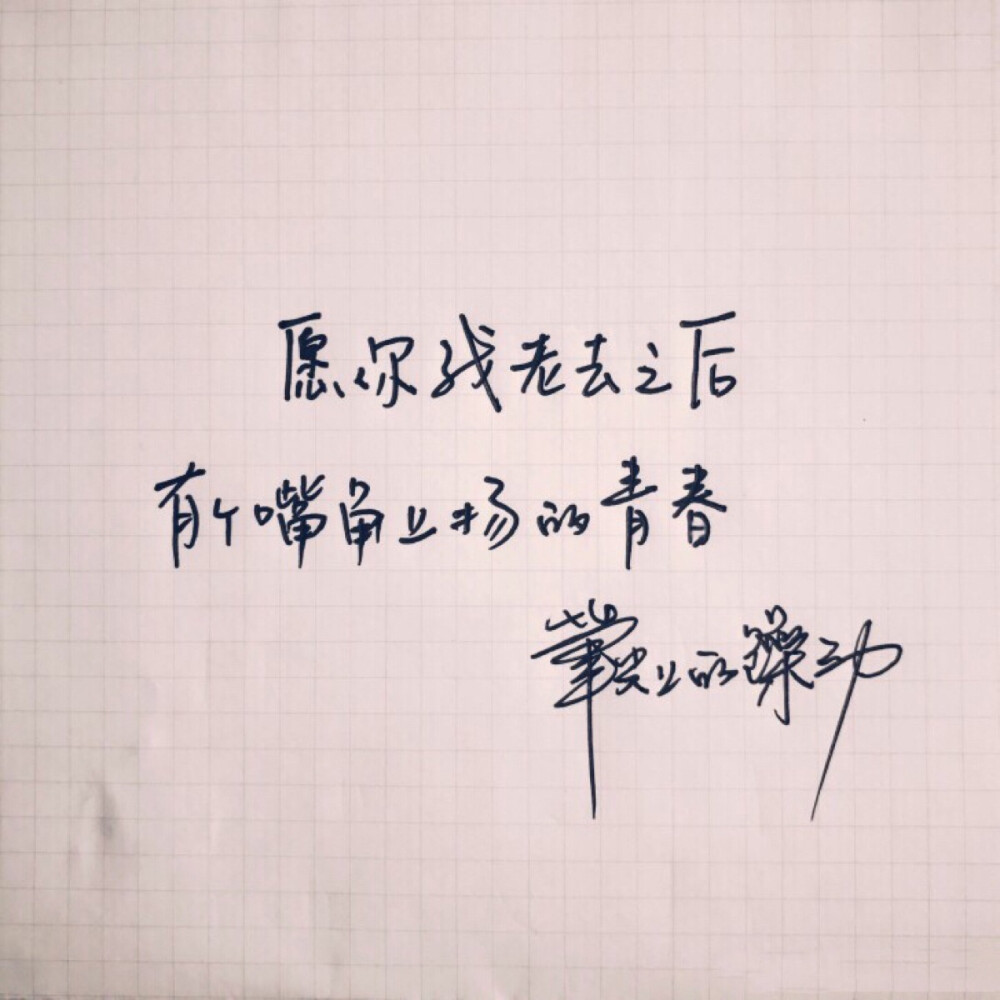 愿你我老去之后
有个嘴角上扬的青春
笔尖上的躁动